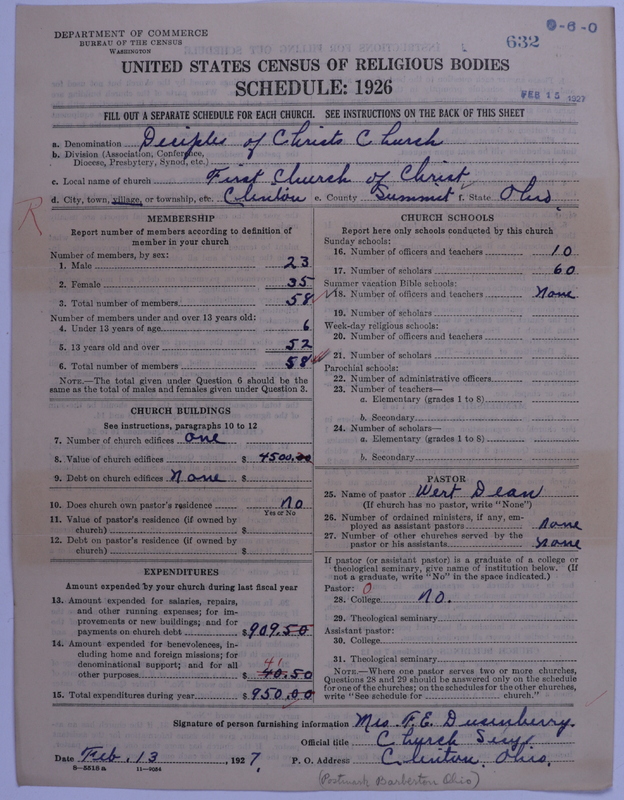 DEPARTMENT OF COMMERCE
BUREAU OF THE CENSUS
WASHINGTON
632
0-6-0
UNITED STATES CENSUS OF RELIGIOUS BODIES
SCHEDULE: 1926
FEB 15 1927
FILL OUT A SEPARATE SCHEDULE FOR EACH CHURCH. SEE INSTRUCTIONS ON THE BACK OF THIS SHEET
a. Denomination Deciples of Christs Church
b. Division (Association, Conference, Diocese, Presbytery, Synod, etc.)
c. Local name of church First Church of Christ
d. City, town, village, or township, etc. Clinton e. County Summit f. State Ohio
R
MEMBERSHIP
Report number of members according to definition of
member in your church
Number of members, by sex:
1. Male 23
2. Female 35
3. Total number of members 58
Number of members under and over 13 years old:
4. Under 13 years of age 6
5. 13 years old and over 52
6. Total number of members 58
NOTE.—The total given under Question 6 should be the
same as the total of males and females given under Question 3.
CHURCH BUILDINGS
See instructions, paragraphs 10 to 12
7. Number of church edifices one
8. Value of church edifices $ 4500.00
9. Debt on church edifices None $
10. Does church own pastor's residence no
Yes or No
11. Value of pastor's residence (if owned by
church) $
12. Debt on pastor's residence (if owned by
church) $
EXPENDITURES
Amount expended by your church during last fiscal year
13. Amount expended for salaries, repairs,
and other running expenses; for im-
provements or new buildings; and for
payments on church debt $ 909.50
14. Amount expended for benevolences, in-
cluding home and foreign missions; for
denominational support; and for all
41
other purposes $ 40.50
15. Total expenditures during year $ 950.00
CHURCH SCHOOLS
Report here only schools conducted by this church
Sunday schools:
16. Number of officers and teachers 10
17. Number of scholars 60
Summer vacation Bible schools:
18. Number of officers and teachers none
19. Number of scholars
Week-day religious schools:
20. Number of officers and teachers
21. Number of scholars
Parochial schools:
22. Number of administrative officers
23. Number of teachers—
a. Elementary (grades 1 to 8)
b. Secondary
24. Number of scholars—
a. Elementary (grades 1 to 8)
b. Secondary
PASTOR
25. Name of pastor Wert Dean
(If church has no pastor, write "None")
26. Number of ordained ministers, if any, em-
ployed as assistant pastors none
27. Number of other churches served by the
pastor or his assistants none
If pastor (or assistant pastor) is a graduate of a college or
theological seminary, give name of institution below. (If
not a graduate, write "No" in the space indicated.)
Pastor: 0
28. College no.
29. Theological seminary
Assistant pastor:
30. College
31. Theological seminary
NOTE.—Where one pastor serves two or more churches,
Questions 28 and 29 should be answered only on the schedule
for one of the churches; on the schedules for the other churches,
write "See schedule for church."
Signature of person furnishing information Mrs F. E. Dusenberry.
Official title Church Secy.
Date Feb. 13, 1927 P. O. Address Clinton, Ohio.
8—5518 a 11—9084
(Postmark Barberton Ohio)